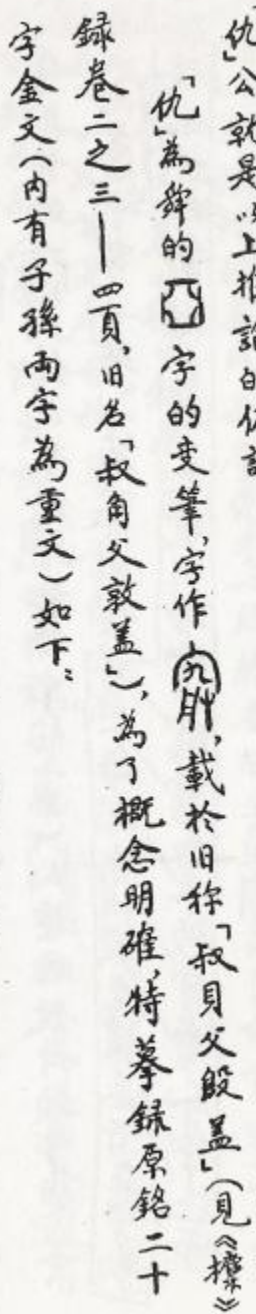 仇」公就是以上推論的
「仇」為舜的字的变筆，字作，載於旧称「叔㒵父殷盖」（見《攈》
録卷二之三——四頁，旧名「叔角父敦盖」），為了概念明確，特摹録原銘二十
字金文（內有子孫両字為重文）如下：